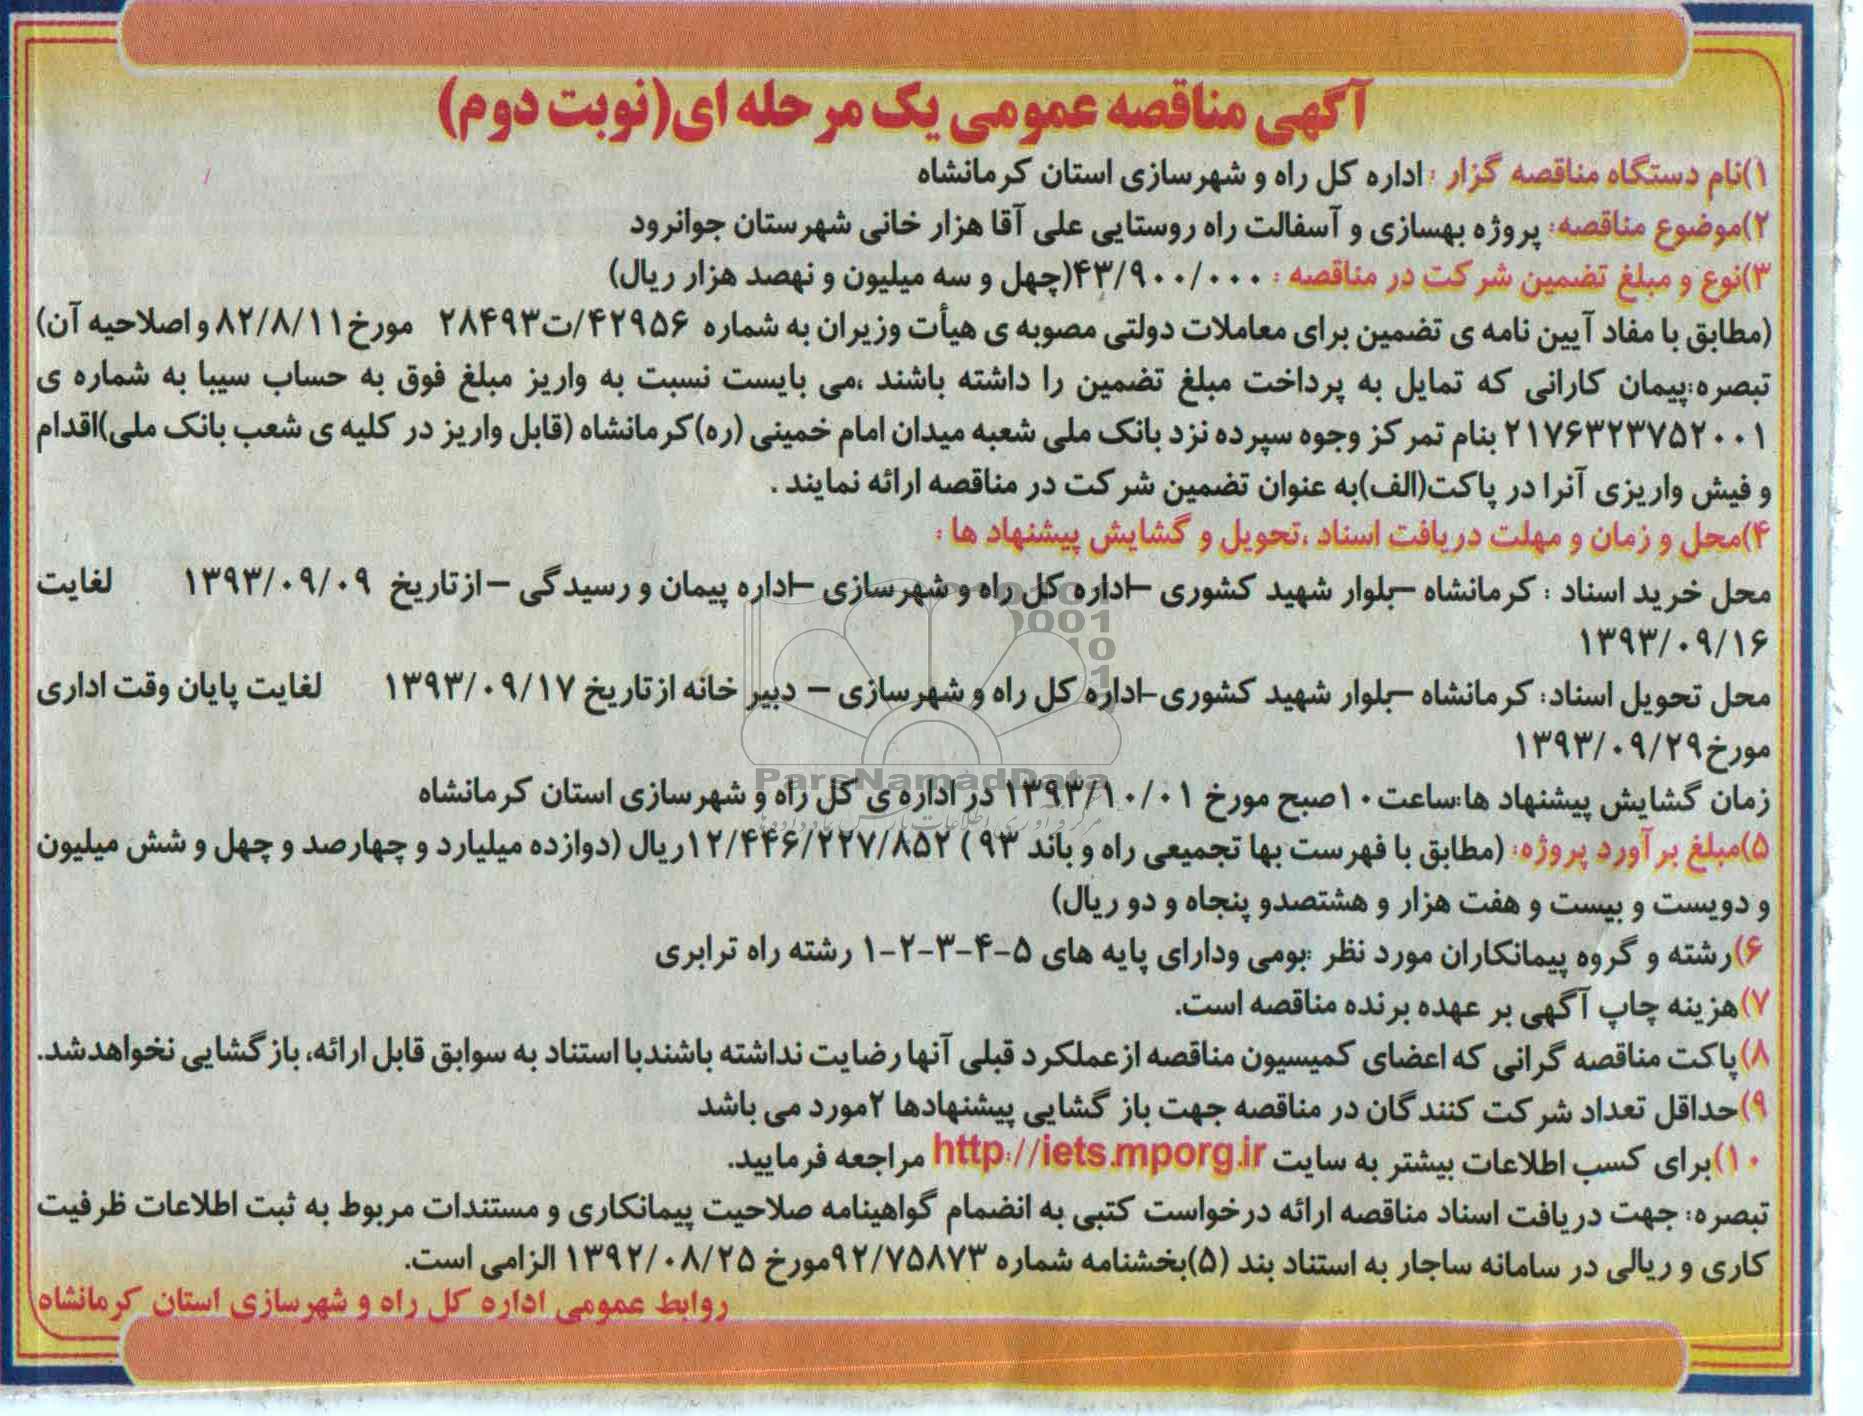 آگهی مناقصه عمومی یک مرحله ای(نوبت دوم)
۱)نام دستگاه مناقصه گزار : اداره کل راه و شهرسازی استان کرمانشاه
۲)موضوع مناقصه: پروژه بهسازی و آسفالت راه روستایی علی آقا هزار خانی شهرستان جوانرود
۳)نوع و مبلغ تضمین شرکت در مناقصه : ۴۳/۹۰۰/۰۰۰(چهل و سه میلیون و نهصد هزار ریال)
(مطابق با مفاد آیین نامه ی تضمین برای معاملات دولتی مصوبه ی هیأت وزیران به شماره ۴۲۹۵۶/ت۲۸۴۹۳ مورخ۸۲/۸/۱۱ و اصلاحیه آن)
تبصره:پیمان کارانی که تمایل به پرداخت مبلغ تضمین را داشته باشند ،می بایست نسبت به واریز مبلغ فوق به حساب سیبا به شماره ی
۲۱۷۶۳۲۳۷۵۲۰۰۱ بنام تمرکز وجوه سپرده نزد بانک ملی شعبه میدان امام خمینی (ره)کرمانشاه (قابل واریز در کلیه ی شعب بانک ملی)اقدام
و فیش واریزی آنرا در پاکت(الف)به عنوان تضمین شرکت در مناقصه ارائه نمایند .
۴)محل و زمان و مهلت دریافت اسناد ،تحویل و گشایش پیشنهاد ها :
محل خرید اسناد : کرمانشاه –بلوار شهید کشوری –اداره کل راه و شهرسازی –اداره پیمان و رسیدگی – ازتاریخ ۱۳۹۳/۰۹/۰۹ لغایت
۱۳۹۳/۰۹/۱۶
محل تحویل اسناد: کرمانشاه –بلوار شهید کشوری-اداره کل راه و شهرسازی – دبیر خانه ازتاریخ ۱۳۹۳/۰۹/۱۷ لغایت پایان وقت اداری
مورخ۱۳۹۳/۰۹/۲۹
ParsNamadData
زمان گشایش پیشنهاد ها:ساعت۱۰صبح مورخ ۱۳۹۳/۱۰/۰۱ در اداره ی کل راه و شهرسازی استان کرمانشاه
۵)مبلغ برآورد پروژه: (مطابق با فهرست بها تجمیعی راه و باند ۹۳ ) ۱۲/۴۴۶/۲۲۷/۸۵۲ریال (دوازده میلیارد و چهارصد و چهل و شش میلیون
و دویست و بیست و هفت هزار و هشتصدو پنجاه و دو ریال)
۶)رشته و گروه پیمانکاران مورد نظر :بومی ودارای پایه های ۵-۴-۳-۲-۱ رشته راه ترابری
۷)هزینه چاپ آگهی بر عهده برنده مناقصه است.
۸)پاکت مناقصه گرانی که اعضای کمیسیون مناقصه ازعملکرد قبلی آنها رضایت نداشته باشندبا استناد به سوابق قابل ارائه، بازگشایی نخواهدشد.
۹)حداقل تعداد شرکت کنندگان در مناقصه جهت باز گشایی پیشنهادها ۲مورد می باشد
۱۰)برای کسب اطلاعات بیشتر به سایت http://iets.mporg.ir مراجعه فرمایید.
تبصره: جهت دریافت اسناد مناقصه ارائه درخواست کتبی به انضمام گواهینامه صلاحیت پیمانکاری و مستندات مربوط به ثبت اطلاعات ظرفیت
کاری و ریالی در سامانه ساجار به استناد بند (۵)بخشنامه شماره ۹۲/۷۵۸۷۳مورخ ۱۳۹۲/۰۸/۲۵ الزامی است.
روابط عمومی اداره کل راه و شهرسازی استان کرمانشاه